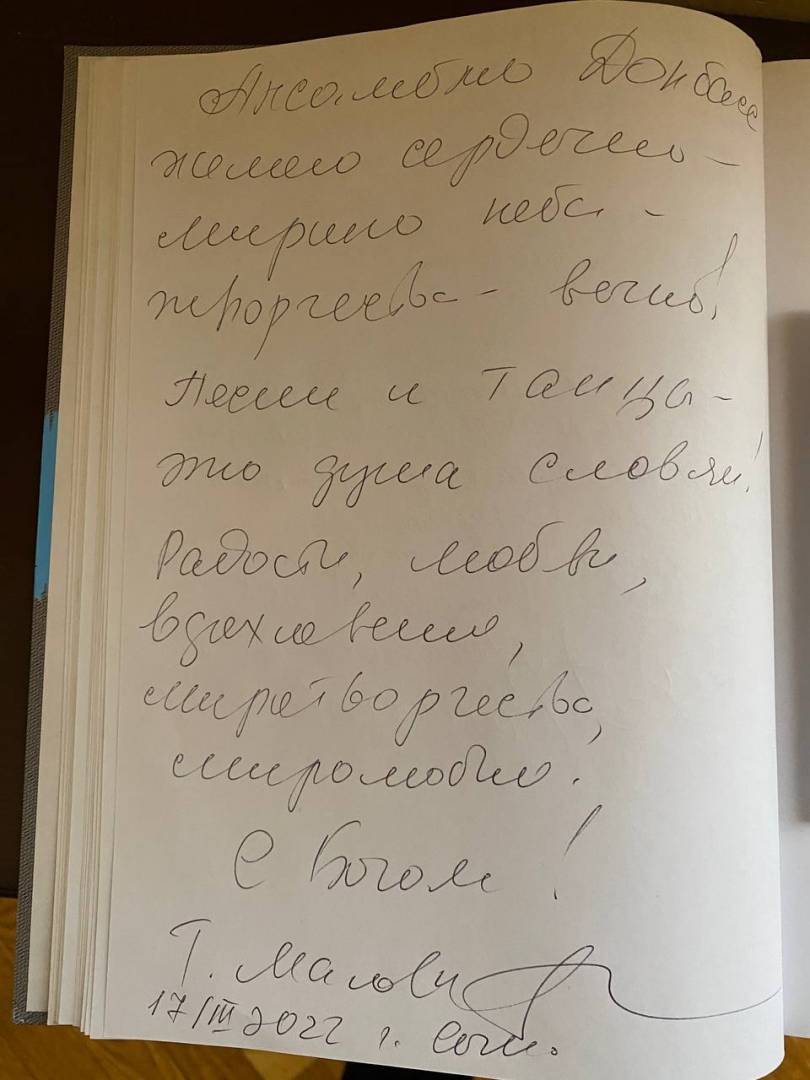 Ансамблю Донбасс
желаю сердечно -
мирного неба -
творчества - вечно!
Песни и танцы -
это душа словян!
Радости, любви,
вдохновения,
миротворчества,
миролюбия.
С Богом!
Т.
17/III 2022 г. Сочи.